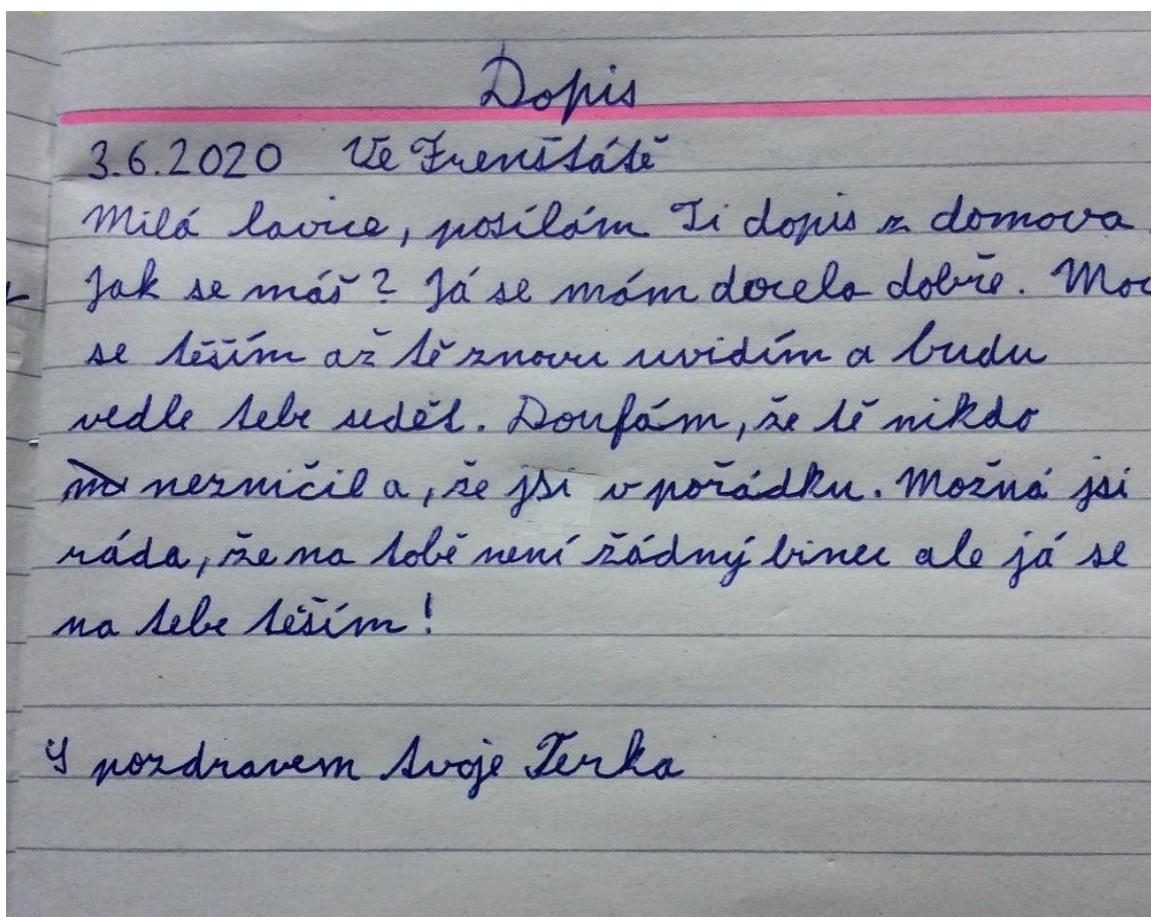 Dopis
3.6.2020 Ve Frenštátě
Milá lavice, posílám Ti dopis z domova.
Jak se máš? Já se mám docela dobře. Moc
se těším až tě znovu uvidím a budu
vedle tebe sedět. Doufám, že tě nikdo
nezničil a, že jsi v pořádku. Možná jsi
ráda, že na tobě není žádný binec ale já se
na tebe těším!
S pozdravem tvoje Terka